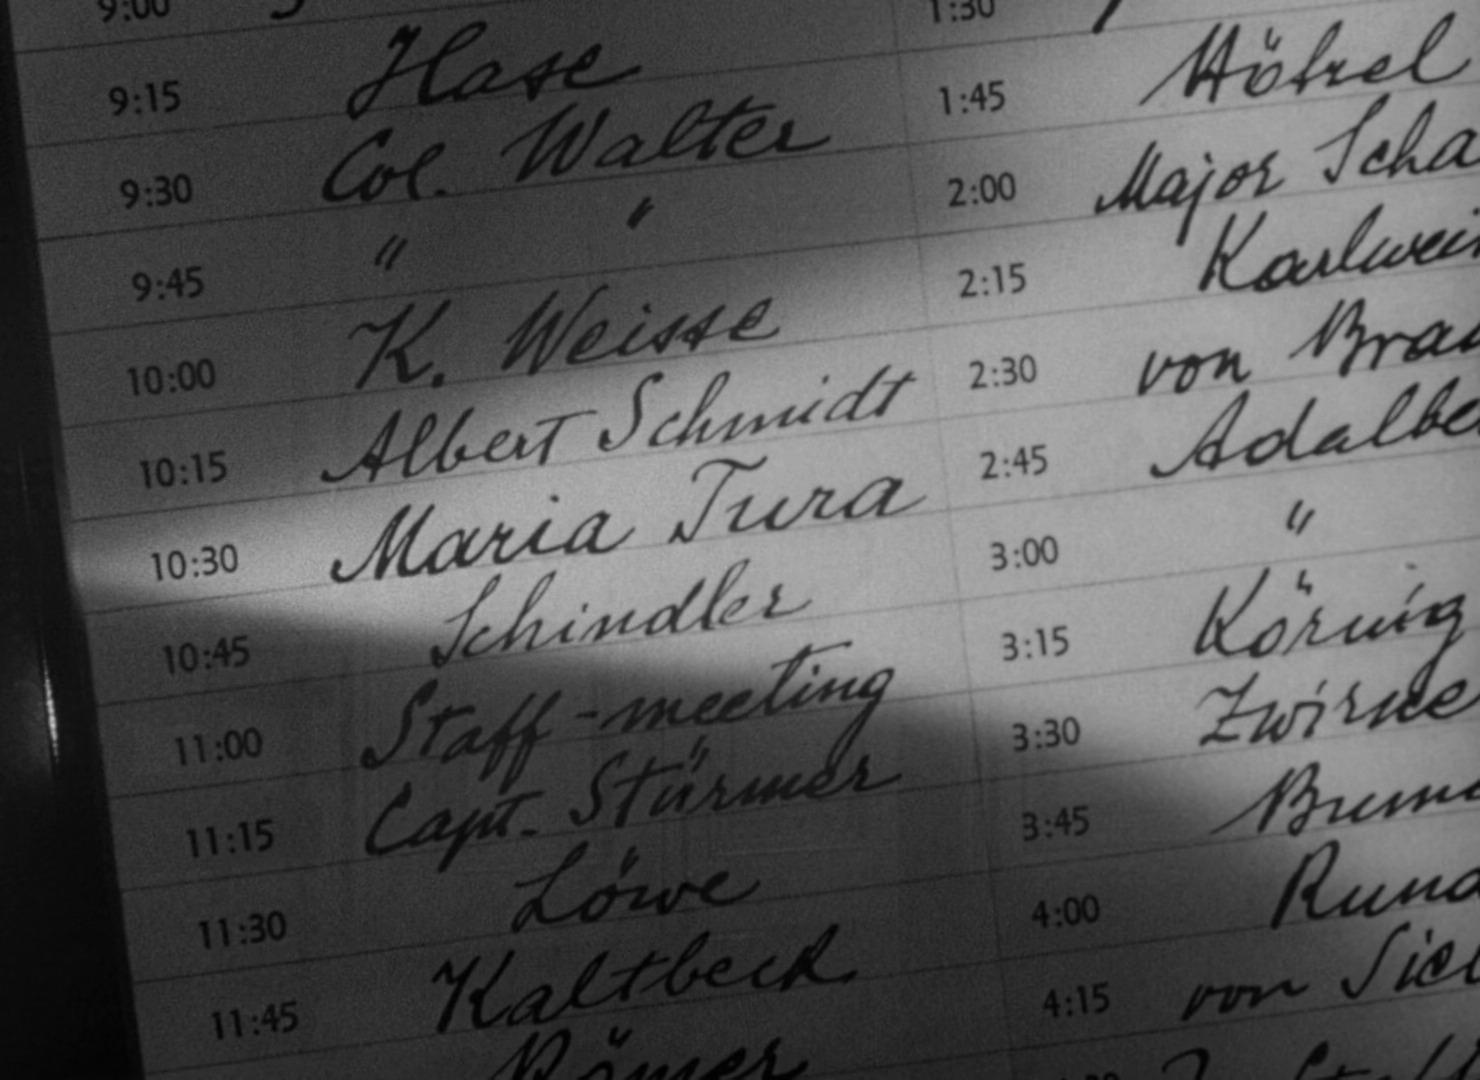 9:00
9:15 Hase
9:30 Col. Walter
9:45 " "
10:00 K. Weisse
10:15 Albert Schmidt
10:30 Maria Tura
10:45 Schindler
11:00 Staff-meeting
11:15 Capt. Stürmer
11:30 Löwe
11:45 Kaltbeck
Römer
1:30
1:45 Hötzel
2:00 Major Scha
2:15 Karlwei
2:30 von Brau
2:45 Adalbe
3:00 "
3:15 Körnig
3:30 Zwirne
3:45
4:00
4:15 von